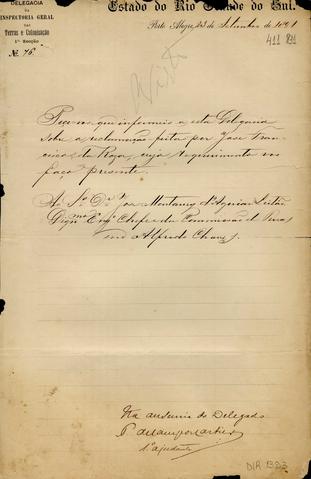 DELEGACIA
DA
INSPECTORIA GERAL
DAS
Terras e Colonisação
1ª Secção
Nº 76
Estado do Rio Grande do Sul.
Porto Alegre, 23 de Setembro de 1891
411 891
Visto
Peço-vos que informeis a esta Delegacia
sobre a reclamação feita por José Fran-
cisco da Roza, cujo requerimento vos
faço presente.
Ao Sr. Dr. José Montaury d'Aguiar Leitão
Digmo Engº Chefe da Commissão de Terras
em Alfredo Chaves.
Na ausencia do Delegado
1º ajudante
DIR 1323